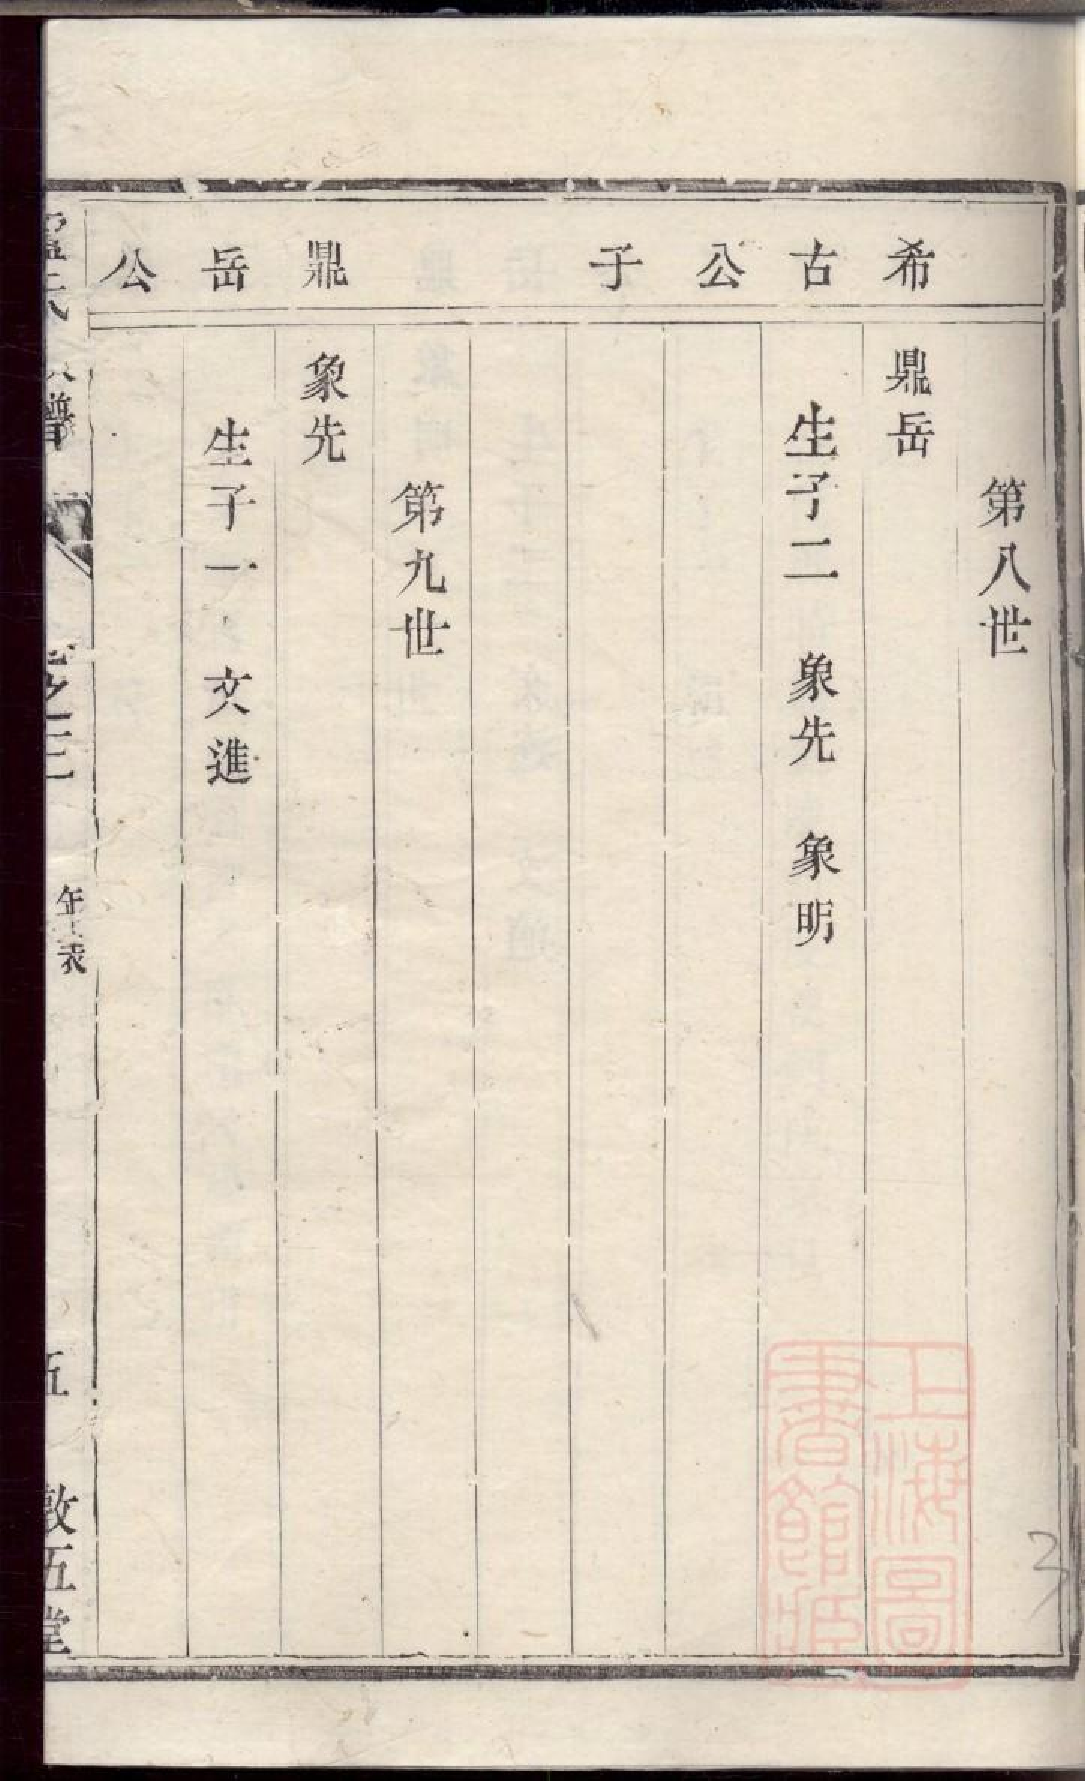 希古公子
第八世
鼎岳
生子二 象先 象明
鼎岳公
第九世
象先
生子一 文進
譜
之三
年表
五
敦五堂
上海圖
書館藏